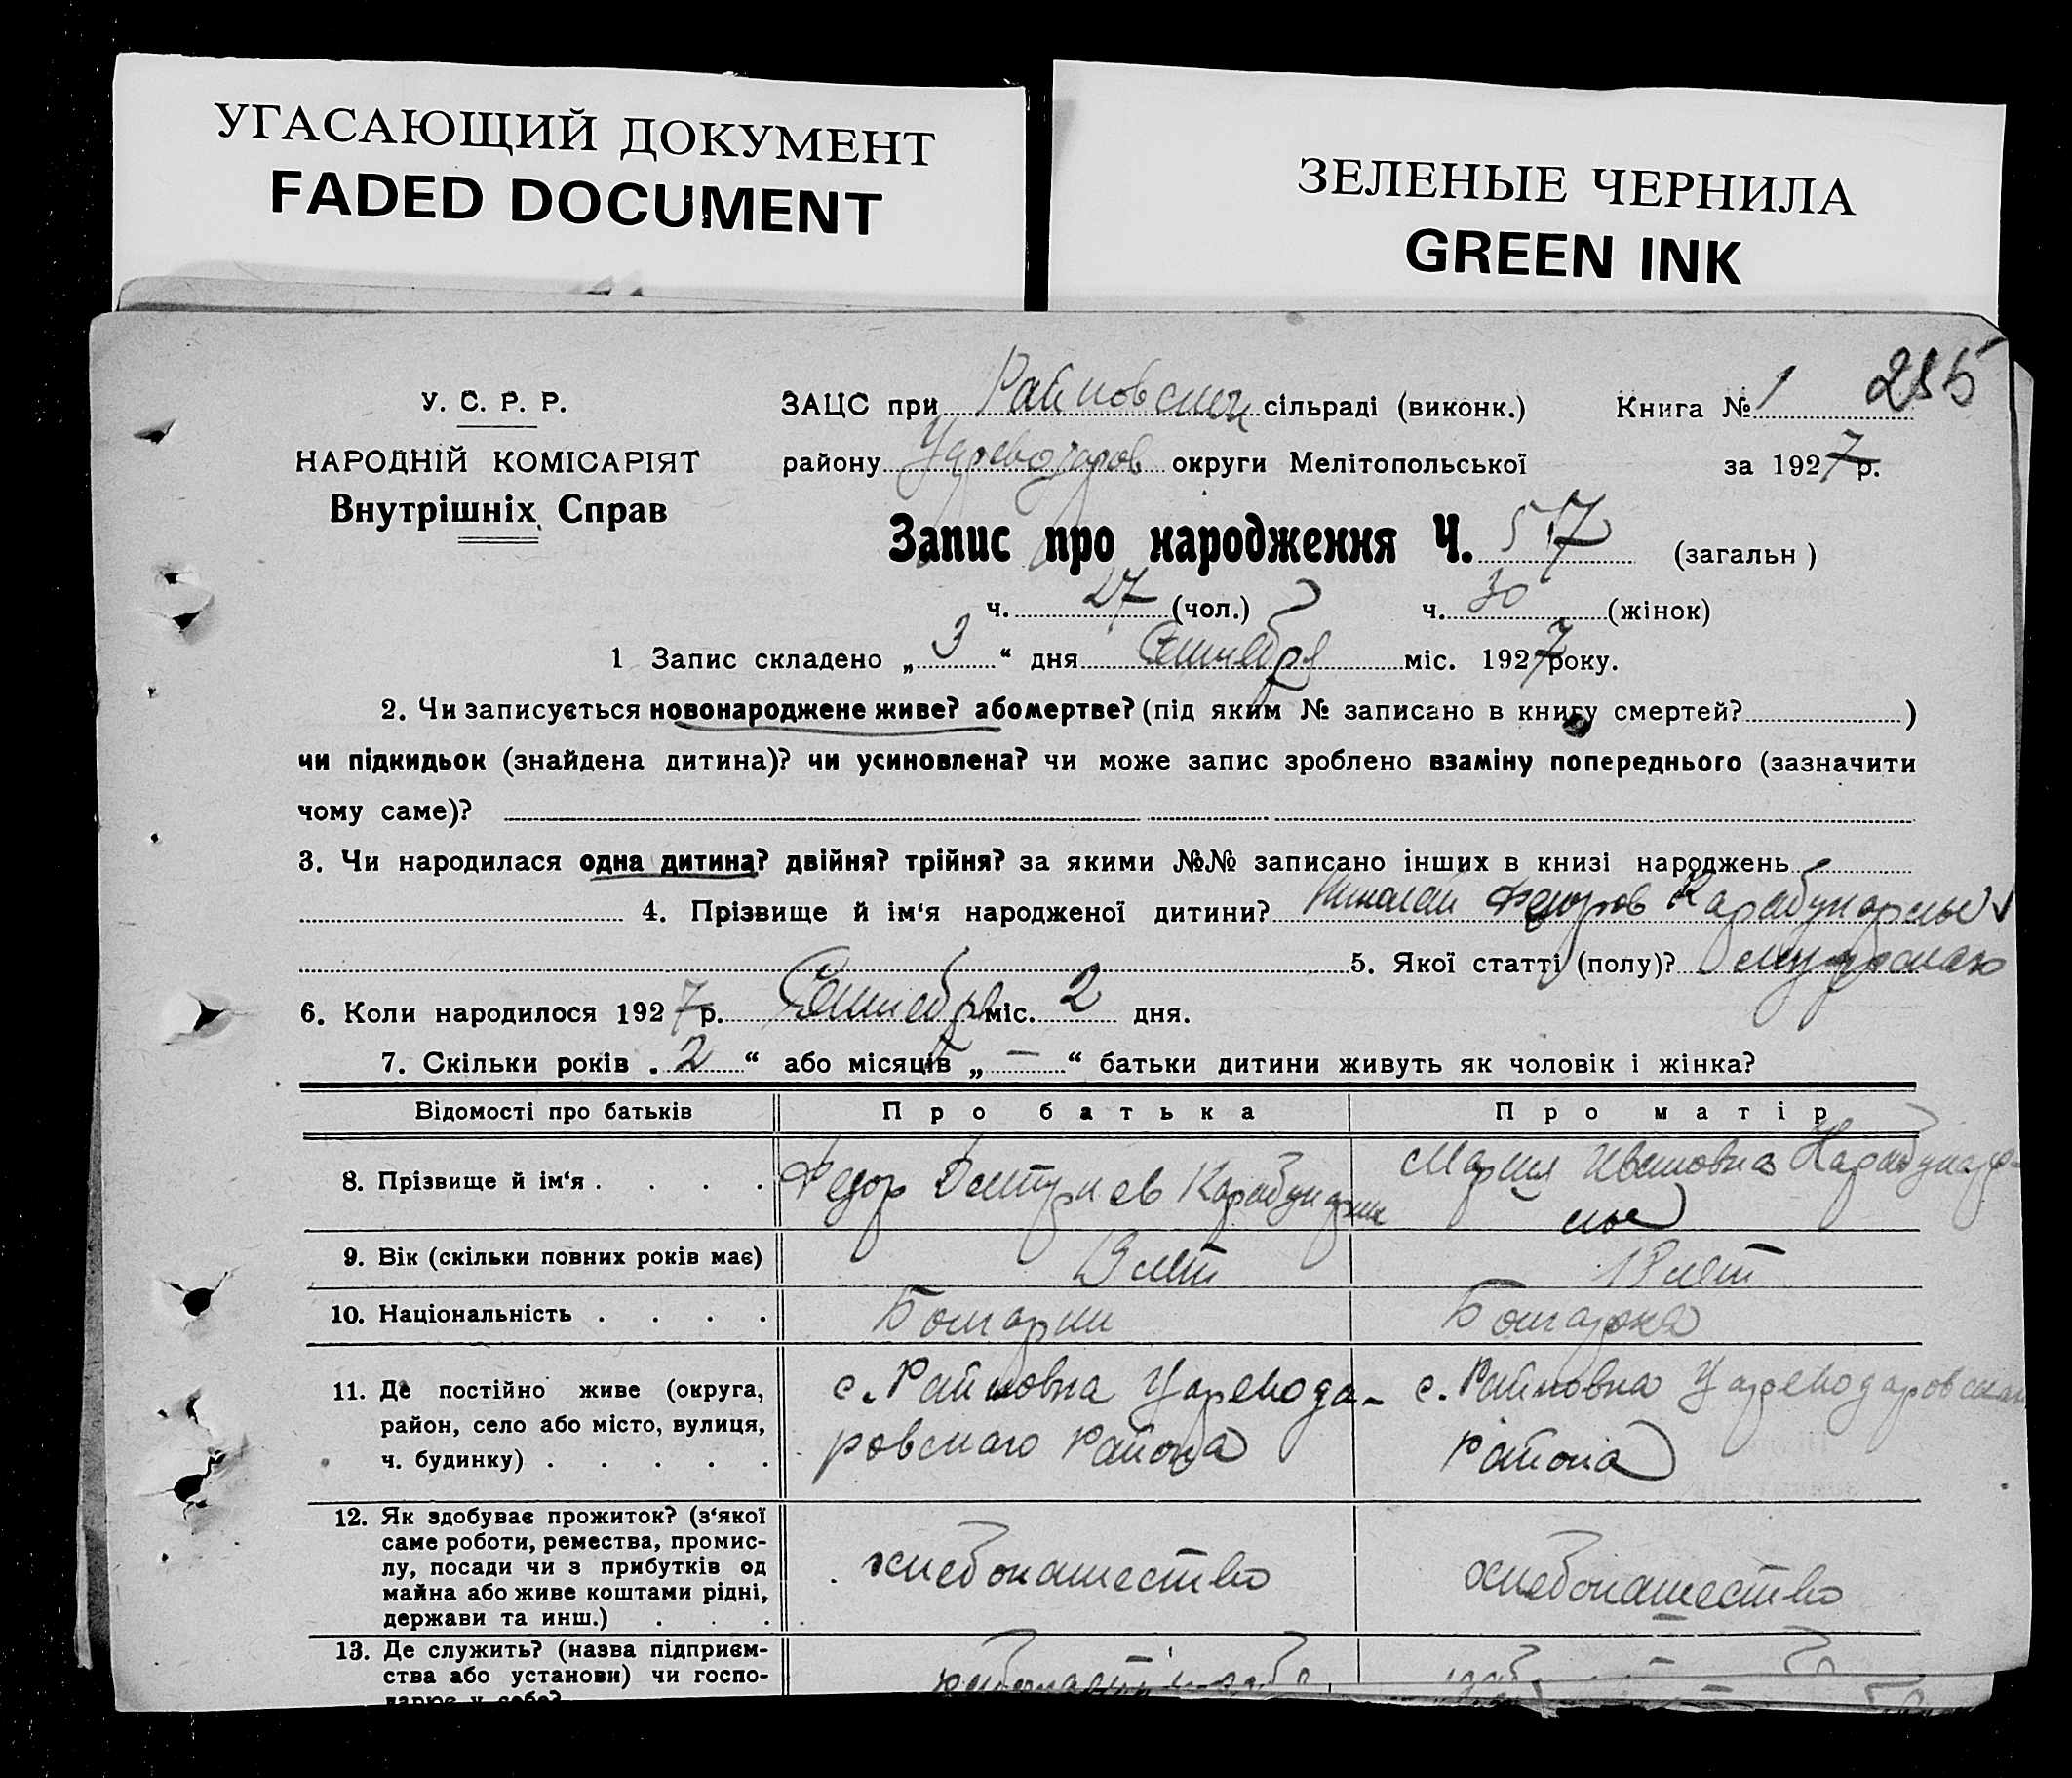 УГАСАЮЩИЙ ДОКУМЕНТ
FADED DOCUMENT
ЗЕЛЕНЫЕ ЧЕРНИЛА
GREEN INK
У. С. Р. Р.
НАРОДНІЙ КОМІСАРІЯТ
Внутрішніх Справ
ЗАЦС при Райновским сільраді (виконк.) Книга № 1 235
району Цареводаров округи Мелітопольської за 1927 р.
Запис про народження Ч. 57 (загальн )
ч. 27 (чол.) ч. 30 (жінок)
1 Запис складено „ 3 “ дня Сентября міс. 1927 року.
2. Чи записується новонароджене живе? або мертве? (під яким № записано в книгу смертей? )
чи підкидьок (знайдена дитина)? чи усиновлена? чи може запис зроблено взаміну попереднього (зазначити
чому саме)?
3. Чи народилася одна дитина? двійня? трійня? за якими №№ записано інших в книзі народжень
4. Прізвище й ім‘я народженої дитини? Николай Федоров
5. Якої статті (полу)?
6. Коли народилося 1927 р. Сентября міс. 2 дня.
7. Скільки років „ 2 “ або місяців „ — “ батьки дитини живуть як чоловік і жінка?
Відомості про батьків Про батька Про матір
8. Прізвище й ім‘я . . . . Федор Дмитриев Мария Ивановна
9. Вік (скільки повних років має) лет 18 лет
10. Національність . . . . Болгарин Болгарка
11. Де постійно живе (округа,
район, село або місто, вулиця,
ч. будинку) . . . . .
с. Райновка Царевода-
ровского района
с. Райновка Цареводаровскаго
района
12. Як здобуває прожиток? (з‘якої
саме роботи, ремества, промис-
лу, посади чи з прибутків од
майна або живе коштами рідні,
держави та инш.) . . .
хлебопашество
хлебопашество
13. Де служить? (назва підприєм-
ства або установи) чи госпо-
дарює у себе?